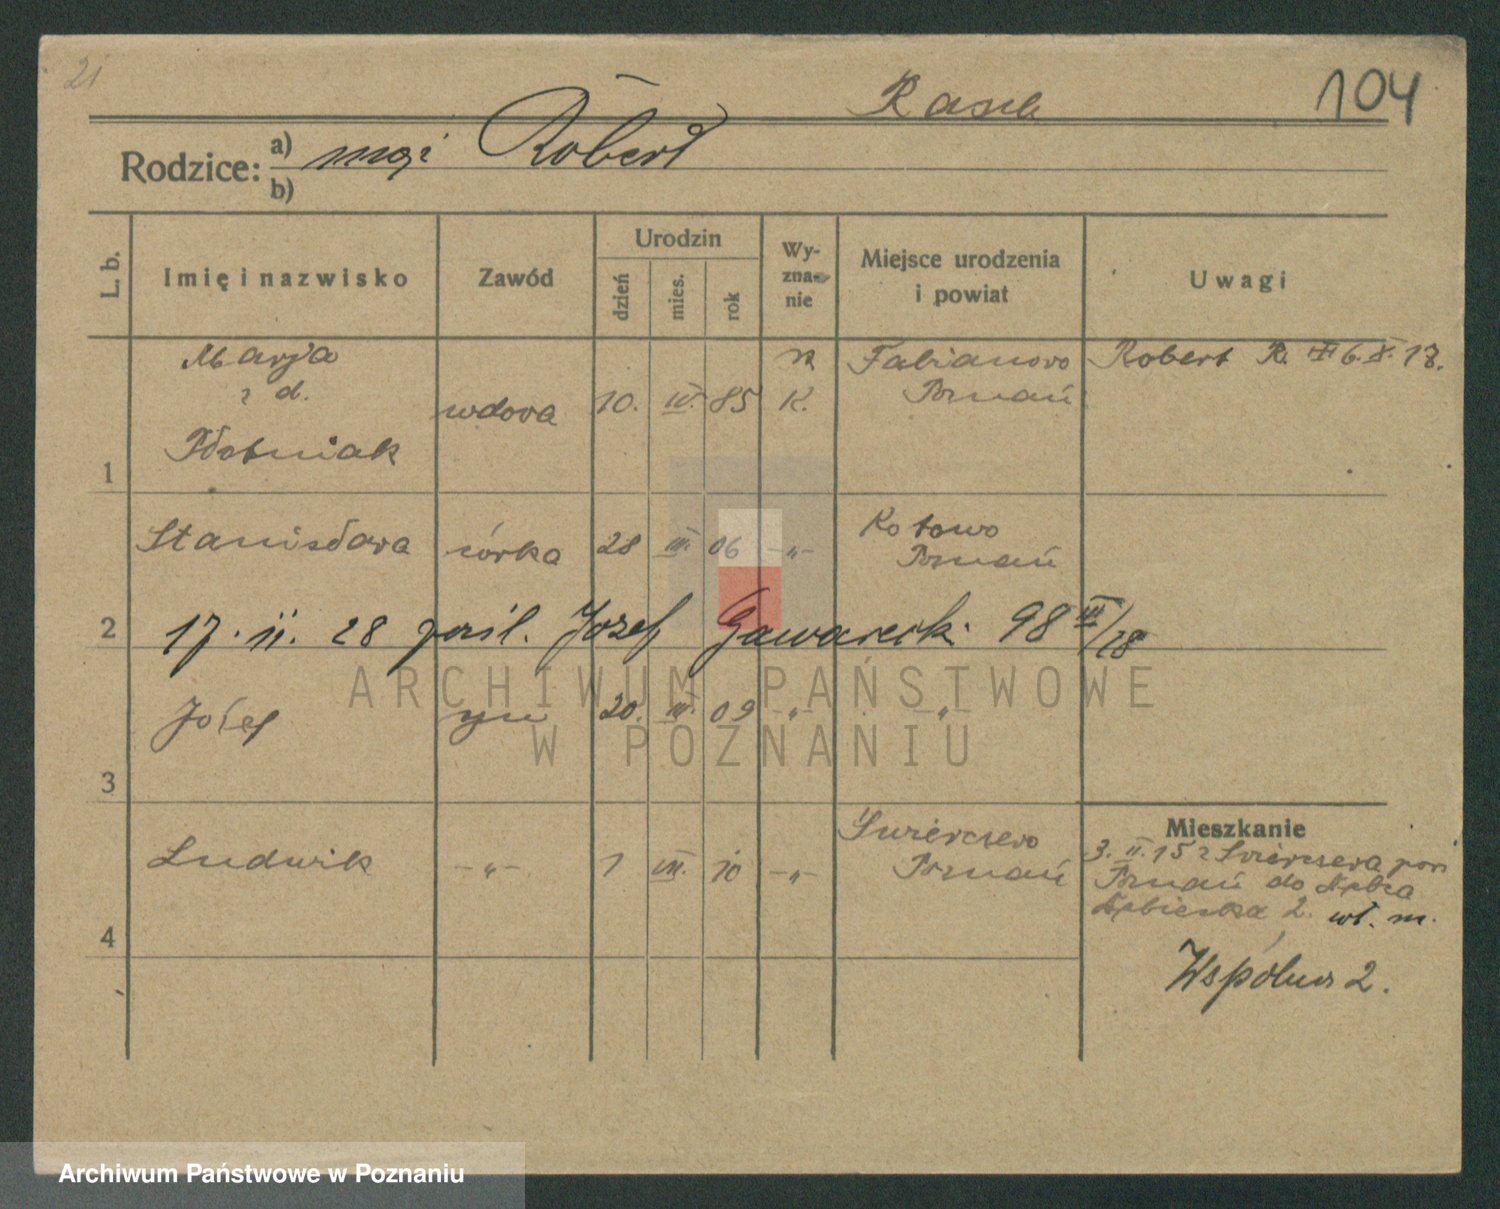 21
Rasch
104
Rodzice: a) mąż Robert
b)
L. b.
Imię i nazwisko
Zawód
Urodzin
dzień
mies.
rok
Wy-
zna-
nie
Miejsce urodzenia
i powiat
Uwagi
1
Marja
z d.
Płotniak
wdowa
10. IV. 85
K.
Fabianowo
Poznań
Robert R. 6. X. 17.
2
Stanisława
córka
28 III. 06 -"-
Kotowo
Poznań
17. II. 28 Józef Gawarecki 98 III/28
3
Józef
syn
20. III. 09 -"- -"-
4
Ludwik
-"-
1 VIII. 10 -"-
Świerczewo
Poznań
Mieszkanie
3. II. 15 z Świerczewa pow
Poznań do Dębca
Dębiecka 2. wł. m.
Wspólna 2.
ARCHIWUM PAŃSTWOWE
W POZNANIU
Archiwum Państwowe w Poznaniu